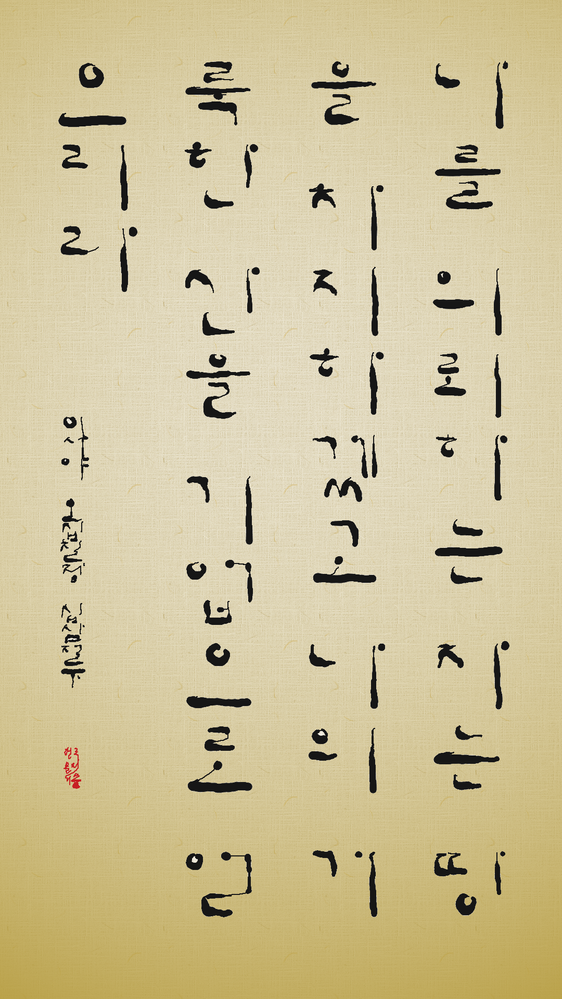 나를 의뢰하는 자는 땅
을 차지하겠고 나의 거
룩한 산을 기업으로 얻
으리라
이사야 오십칠장 십삼절